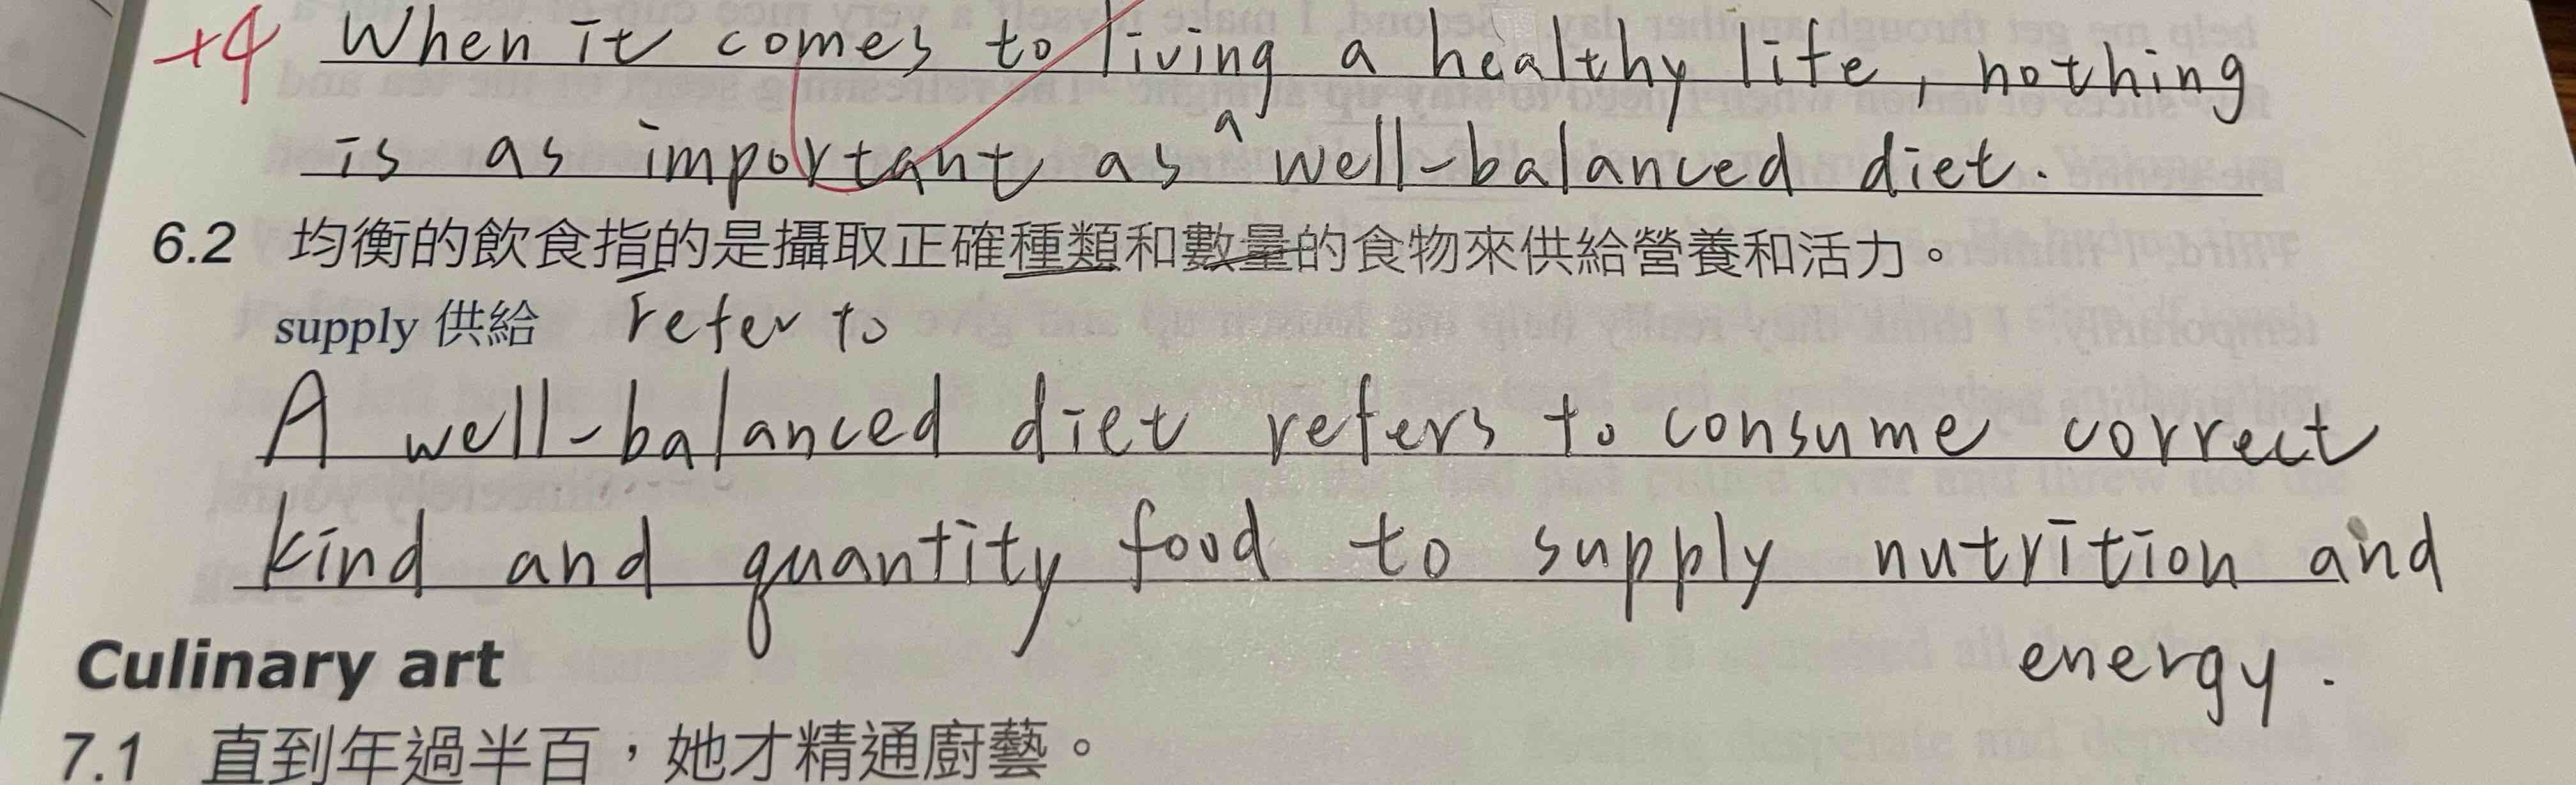 +4 When it comes to living a healthy life, nothing
is as important as a well-balanced diet.
6.2 均衡的飲食指的是攝取正確種類和數量的食物來供給營養和活力。
supply 供給 refer to
A well-balanced diet refers to consume correct
kind and quantity food to supply nutrition and
energy.
Culinary art
7.1 直到年過半百，她才精通廚藝。